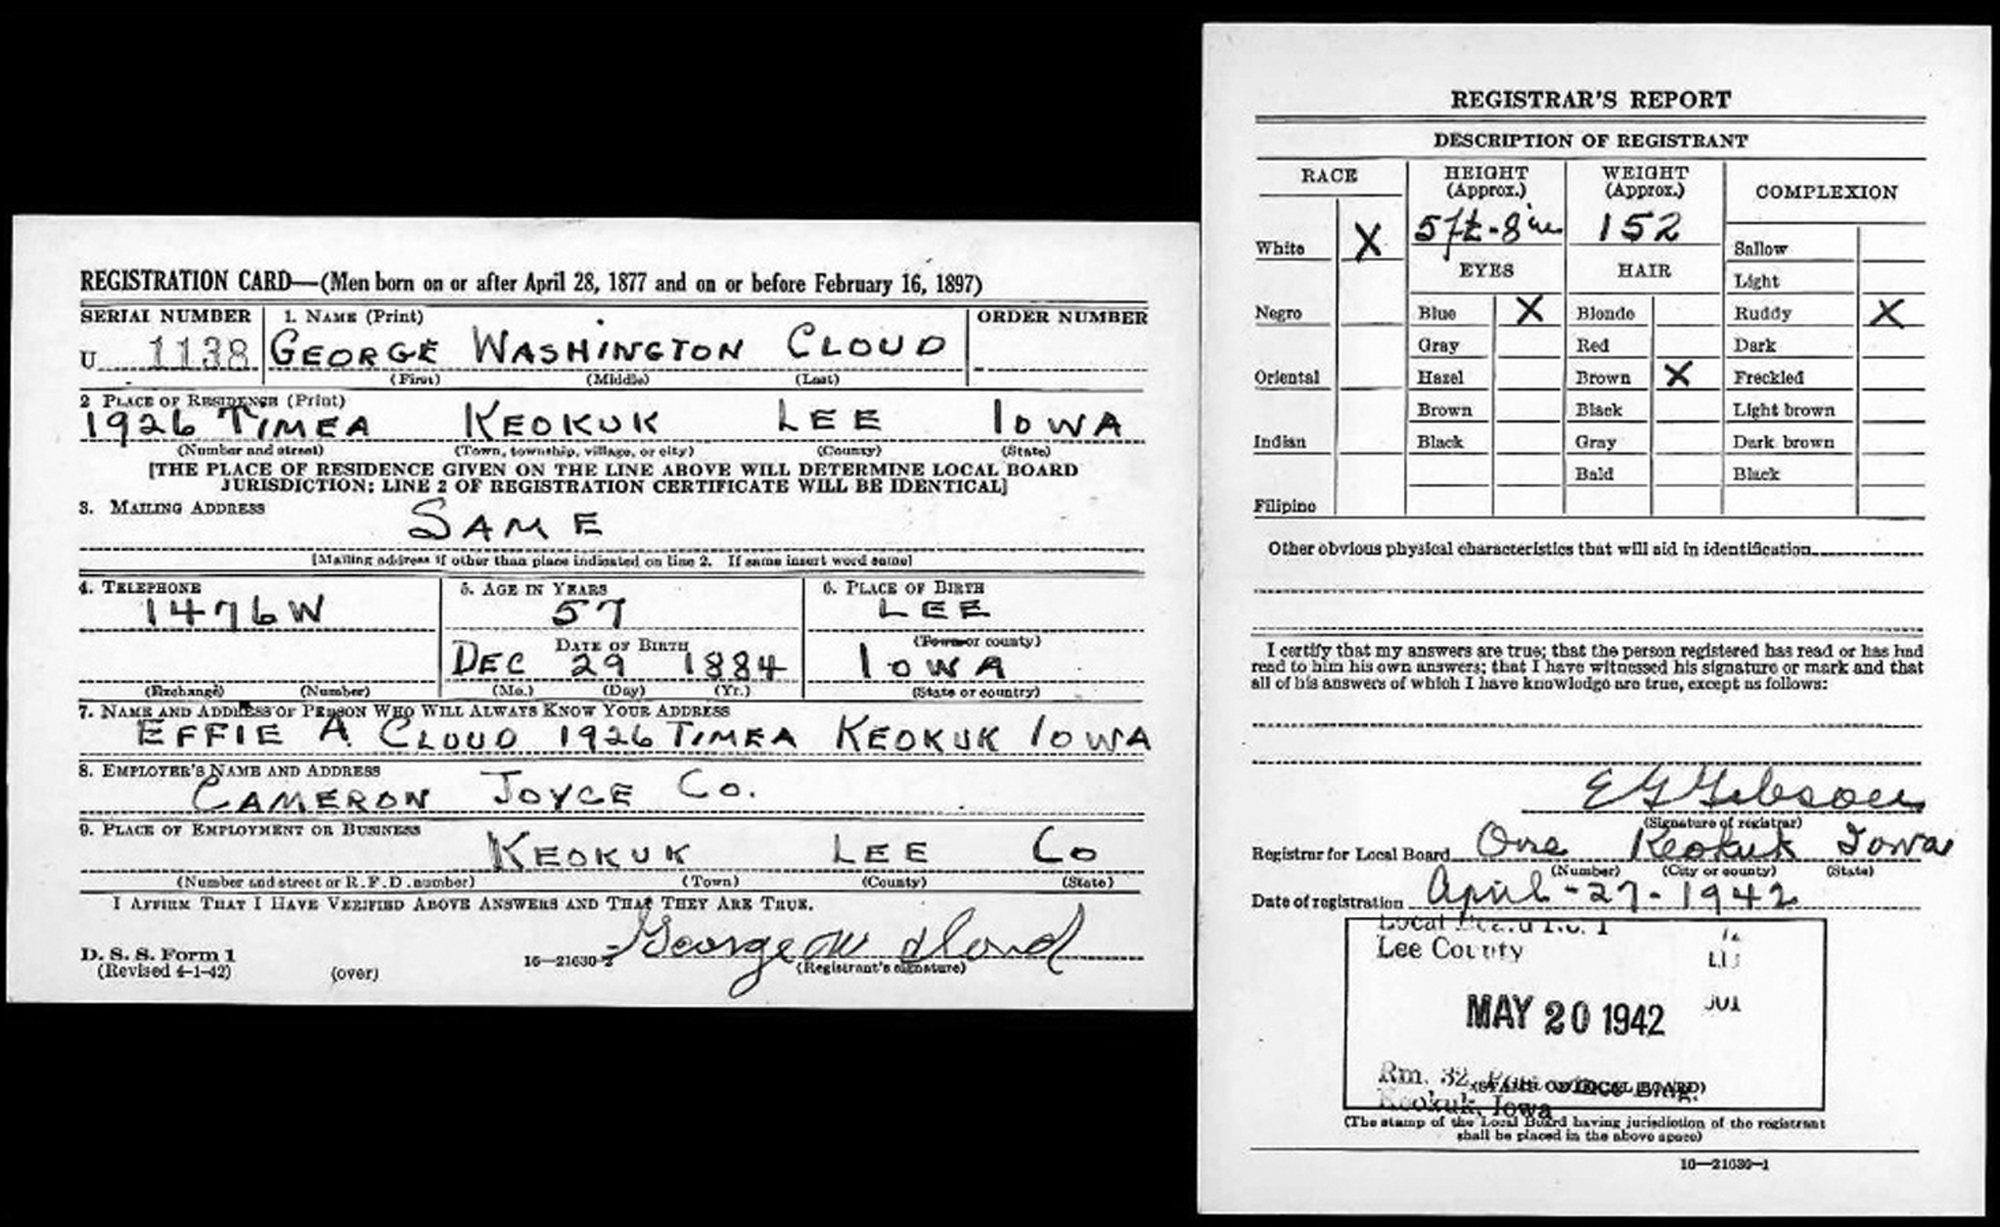 REGISTRATION CARD—(Men born on or after April 28, 1877 and on or before February 16, 1897)
SERIAL NUMBER 1. NAME (Print) ORDER NUMBER
U 1138 GEORGE WASHINGTON CLOUD
(First) (Middle) (Last)
2 PLACE OF RESIDENCE (Print)
1926 TIMEA KEOKUK LEE IOWA
(Number and street) (Town, township, village, or city) (County) (State)
[THE PLACE OF RESIDENCE GIVEN ON THE LINE ABOVE WILL DETERMINE LOCAL BOARD
JURISDICTION; LINE 2 OF REGISTRATION CERTIFICATE WILL BE IDENTICAL]
3. MAILING ADDRESS
SAME
[Mailing address if other than place indicated on line 2. If same insert word same]
4. TELEPHONE 5. AGE IN YEARS 6. PLACE OF BIRTH
1476W 57 LEE
DATE OF BIRTH (Town or county)
DEC 29 1884 IOWA
(Exchange) (Number) (Mo.) (Day) (Yr.) (State or country)
7. NAME AND ADDRESS OF PERSON WHO WILL ALWAYS KNOW YOUR ADDRESS
EFFIE A CLOUD 1926 TIMEA KEOKUK IOWA
8. EMPLOYER'S NAME AND ADDRESS
CAMERON JOYCE CO.
9. PLACE OF EMPLOYMENT OR BUSINESS
KEOKUK LEE CO
(Number and street or R.F.D. number) (Town) (County) (State)
I AFFIRM THAT I HAVE VERIFIED ABOVE ANSWERS AND THAT THEY ARE TRUE.
George W Cloud
D. S. S. Form 1
(Revised 4-1-42) (over) 16—21630-2 (Registrant's signature)
REGISTRAR'S REPORT
DESCRIPTION OF REGISTRANT
RACE HEIGHT (Approx.) WEIGHT (Approx.) COMPLEXION
5 ft - 8 in 152
White X Sallow
EYES HAIR
Light
Negro Blue X Blonde Ruddy X
Gray Red Dark
Oriental Hazel Brown X Freckled
Brown Black Light brown
Indian Black Gray Dark brown
Bald Black
Filipino
Other obvious physical characteristics that will aid in identification
I certify that my answers are true; that the person registered has read or has had
read to him his own answers; that I have witnessed his signature or mark and that
all of his answers of which I have knowledge are true, except as follows:
E G Gibson
(Signature of registrar)
Registrar for Local Board One Keokuk Iowa
(Number) (City or county) (State)
Date of registration April - 27 - 1942
Local
Lee County
MAY 20 1942
Rm. 32, Bldg.
(STAMP OF LOCAL BOARD)
Keokuk, Iowa
(The stamp of the Local Board having jurisdiction of the registrant
shall be placed in the above space)
16—21630-1